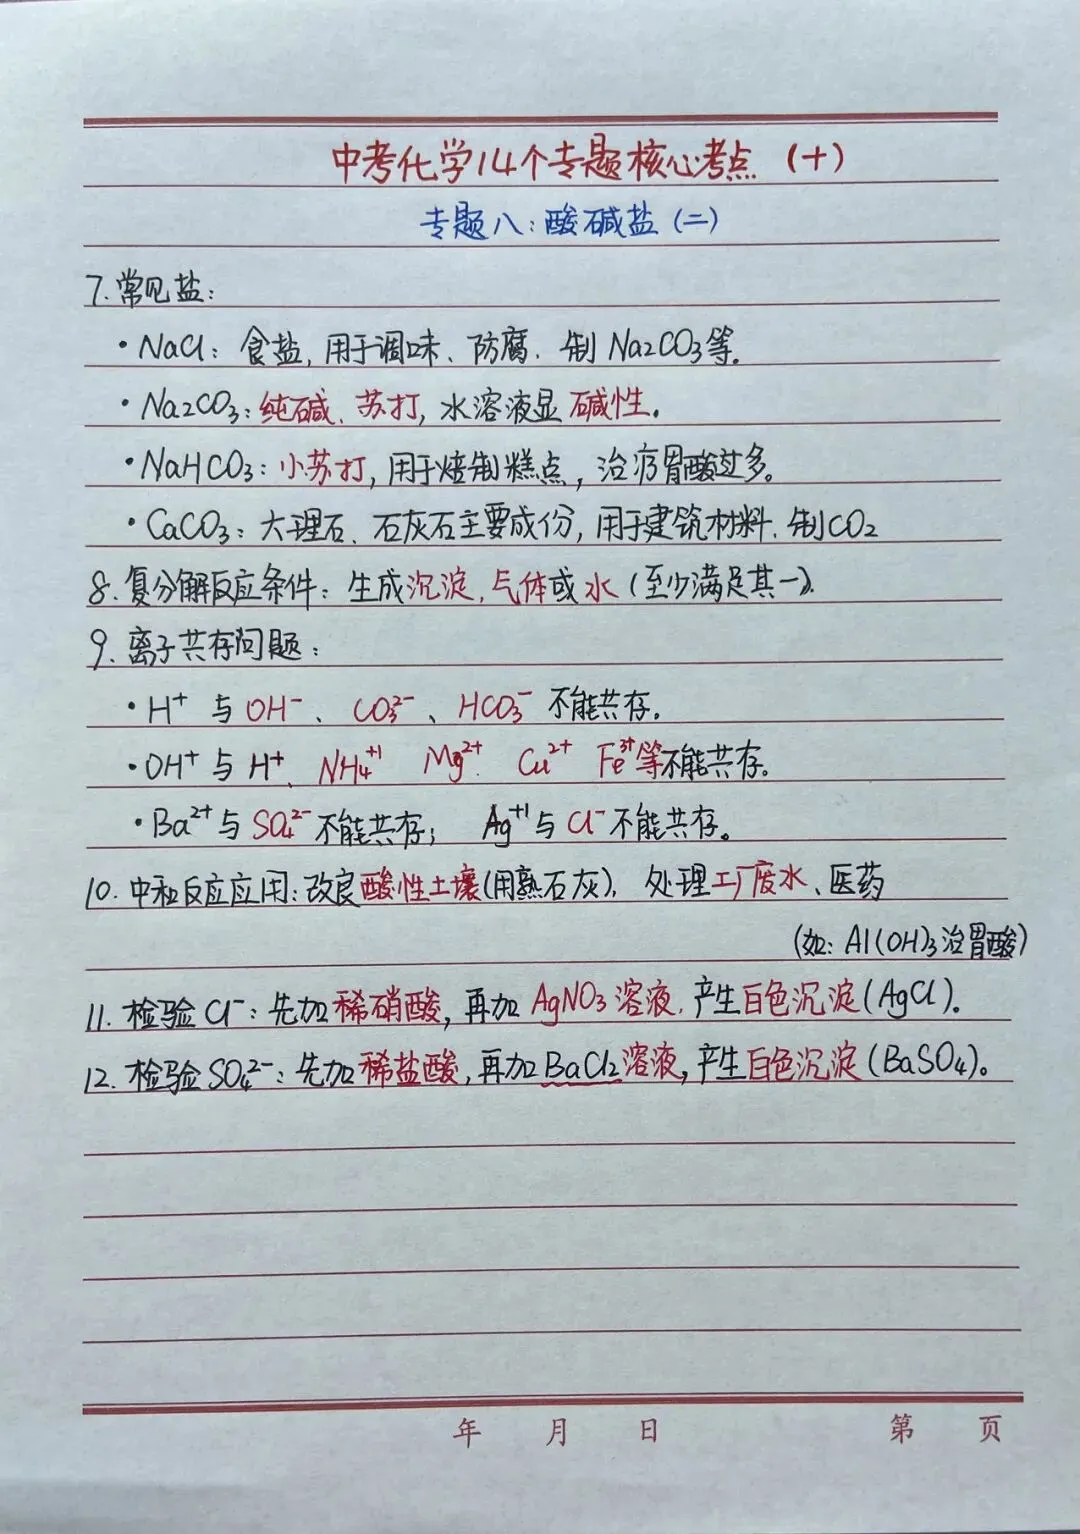 中考化学14个专题核心考点（十）
专题八：酸碱盐（二）
7.常见盐：
·NaCl：食盐，用于调味、防腐、制Na2CO3等。
·Na2CO3：纯碱、苏打，水溶液显碱性。
·NaHCO3：小苏打，用于焙制糕点，治疗胃酸过多。
·CaCO3：大理石、石灰石主要成份，用于建筑材料、制CO2
8.复分解反应条件：生成沉淀，气体或水（至少满足其一）.
9.离子共存问题：
·H⁺ 与 OH⁻、CO₃²⁻、HCO₃⁻ 不能共存。
·OH⁺ 与 H⁺、NH₄⁺¹ Mg²⁺. Cu²⁺ Fe³⁺等不能共存。
·Ba²⁺与SO₄²⁻不能共存； Ag⁺¹与Cl⁻不能共存。
10.中和反应应用：改良酸性土壤（用熟石灰）、处理工厂废水、医药
（如：Al(OH)3治胃酸）
11.检验Cl⁻：先加稀硝酸，再加AgNO3溶液，产生白色沉淀（AgCl）。
12.检验SO₄²⁻：先加稀盐酸，再加BaCl2溶液，产生白色沉淀（BaSO4）。
年 月 日 第 页